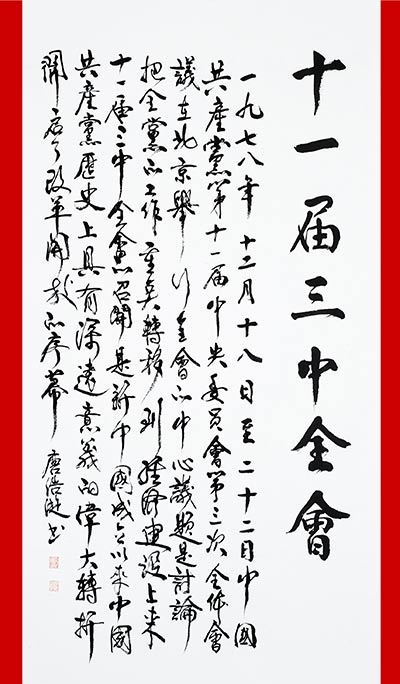 十一届三中全會
一九七八年十二月十八日至二十二日中國
共產黨第十一届中央委員會第三次全体會
議在北京舉行全會的中心議題是討論
把全黨的工作重點轉移到經濟建設上來
十一届三中全會的召開是新中國成立以來中國
共產黨歷史上具有深遠意義的偉大轉折
開啓了改革開放的序幕
唐浩凝书